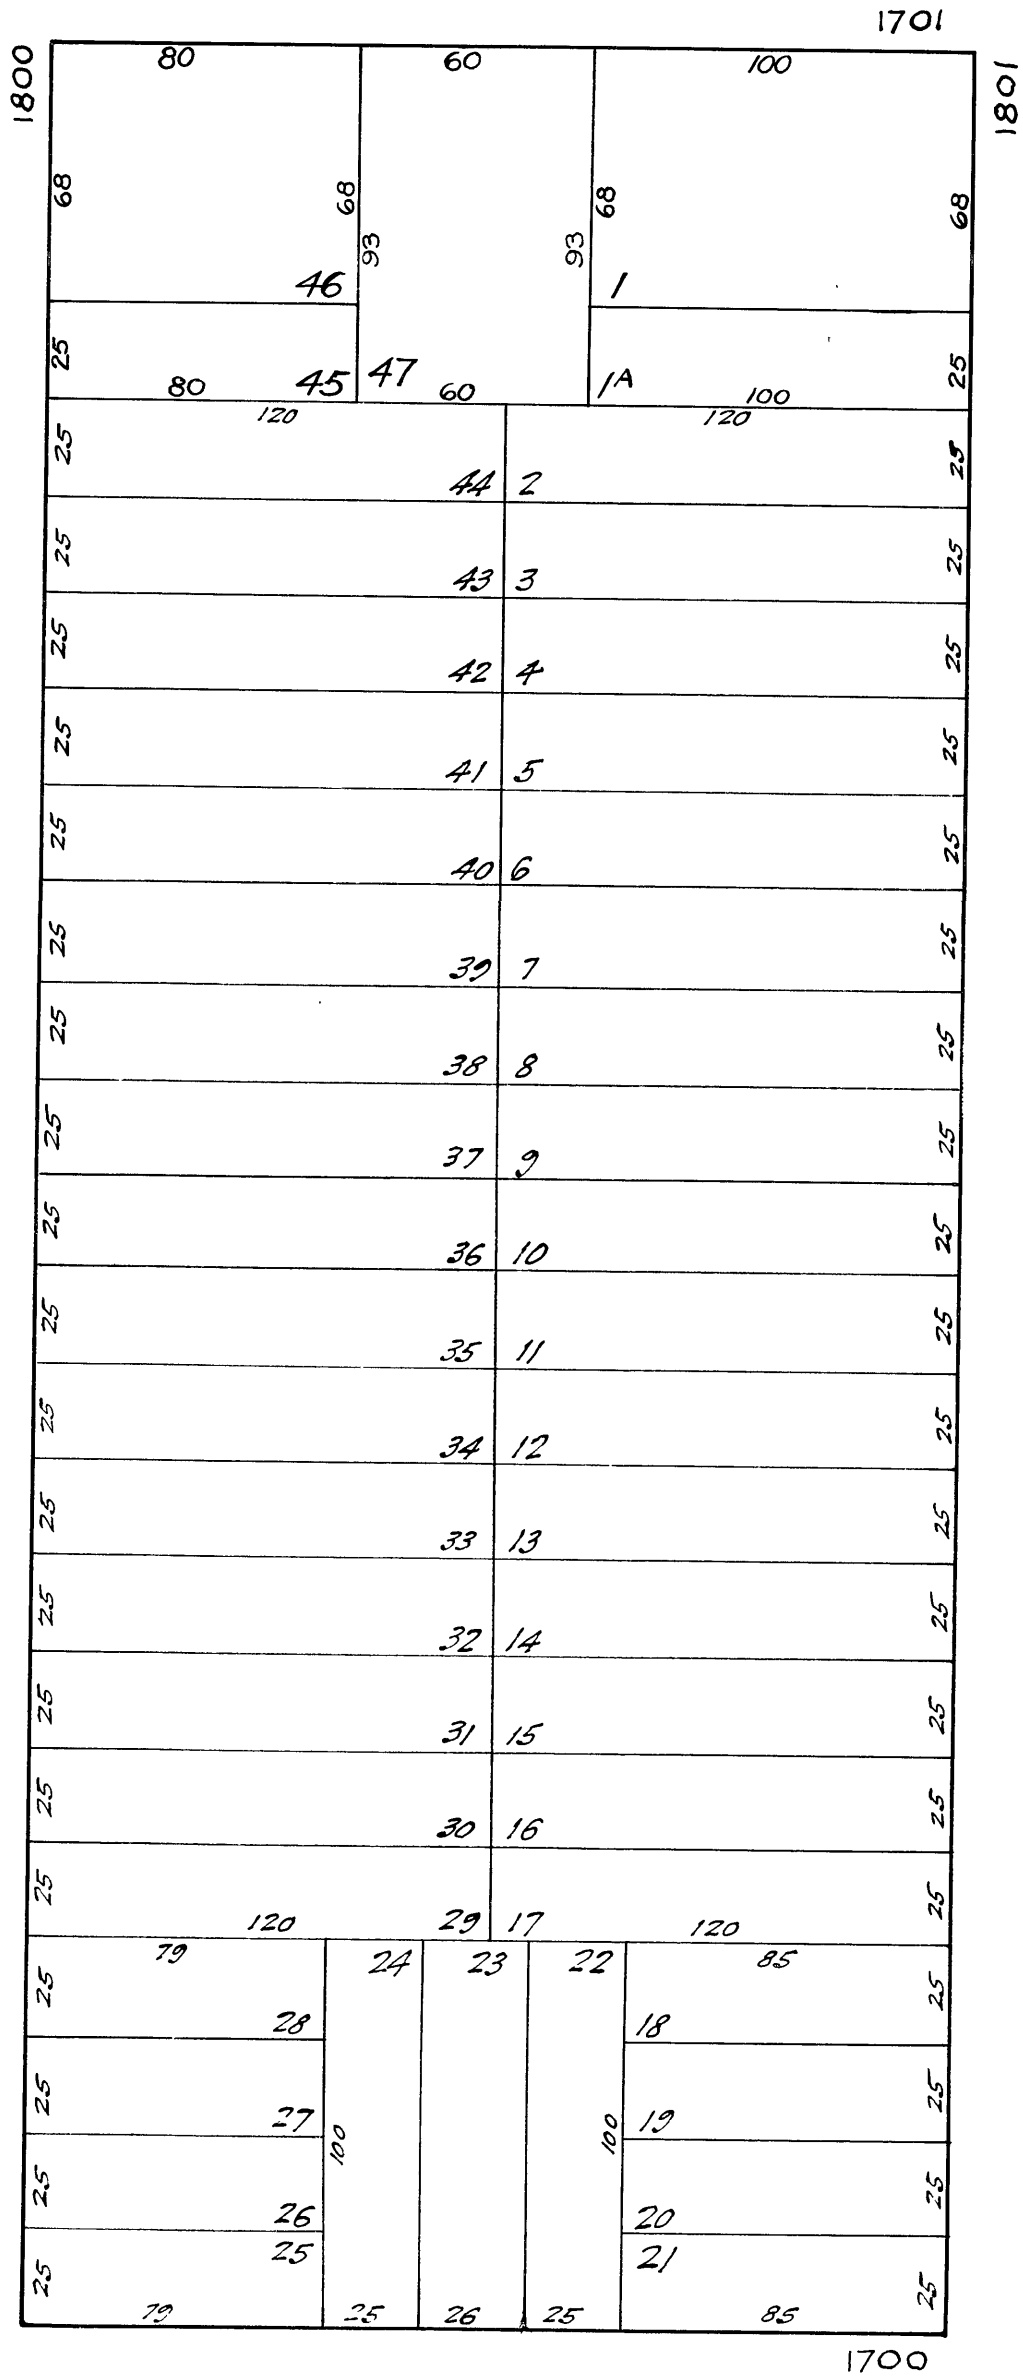 1701
1800 80 60 100 1801
68 68 68 68
93 93
46 1
25 25
80 45 47 60 1A 100
120 120
25 25
44 2
25 25
43 3
25 25
42 4
25 25
41 5
25 25
40 6
25 25
39 7
25 25
38 8
25 25
37 9
25 25
36 10
25 25
35 11
25 25
34 12
25 25
33 13
25 25
32 14
25 25
31 15
25 25
30 16
25 25
120 29 17 120
79 24 23 22 85
25 25
28 18
25 25
27 19
100 100
25 25
26 20
25 21
25 25
79 25 26 25 85
1700